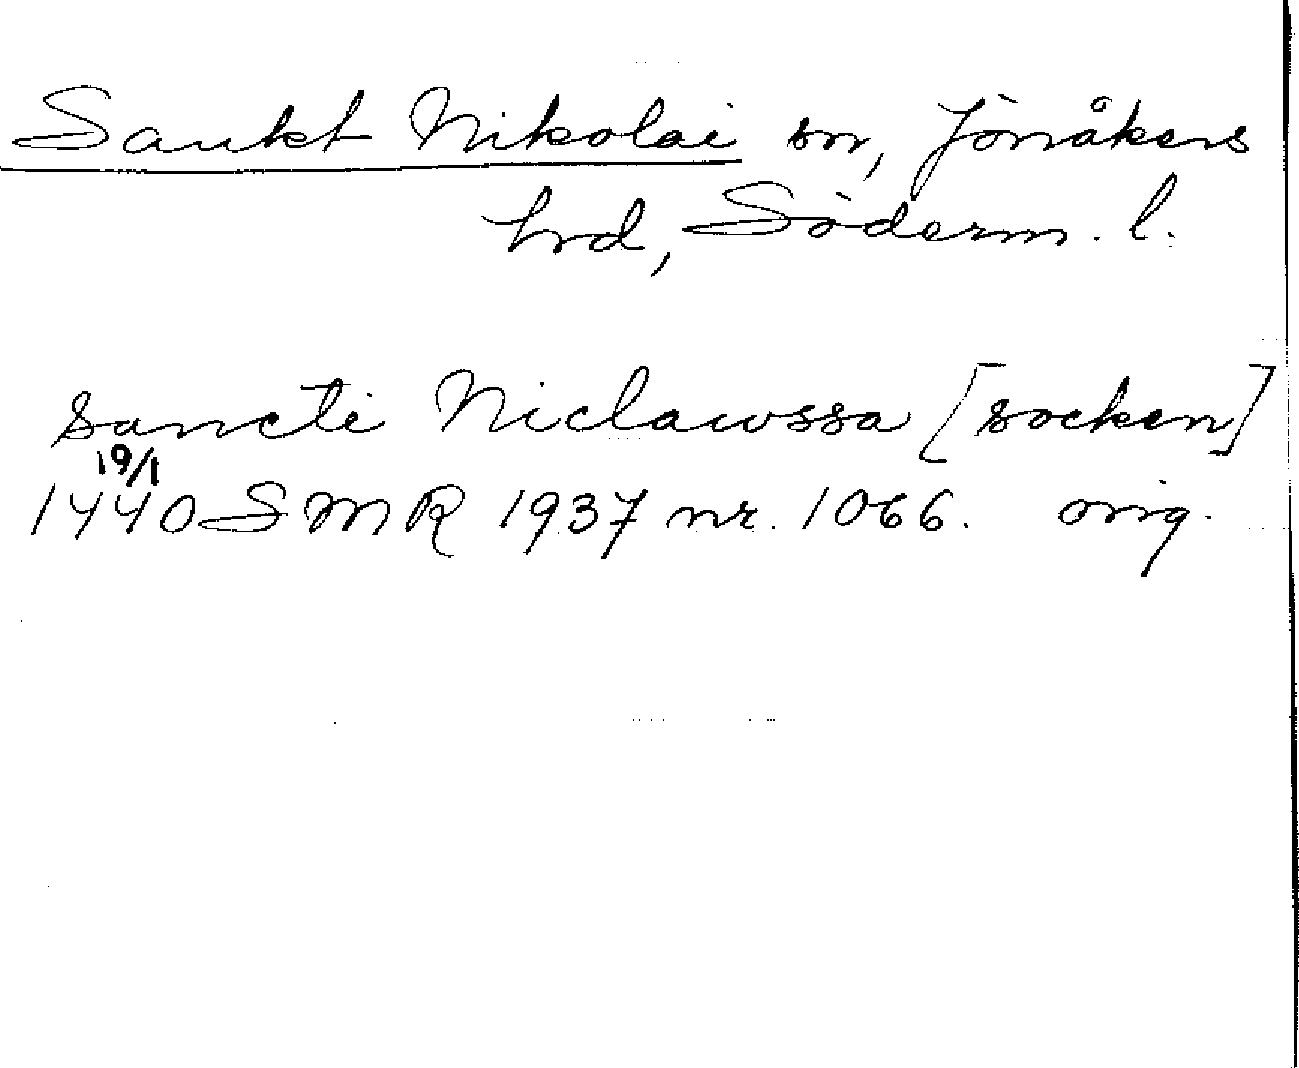 Sankt Nikolai sn, Jönåkers
hrd, Söderm. l.
sancti Niclawssa [socken]
19/1
1440 SMR 1937 nr. 1066. orig.